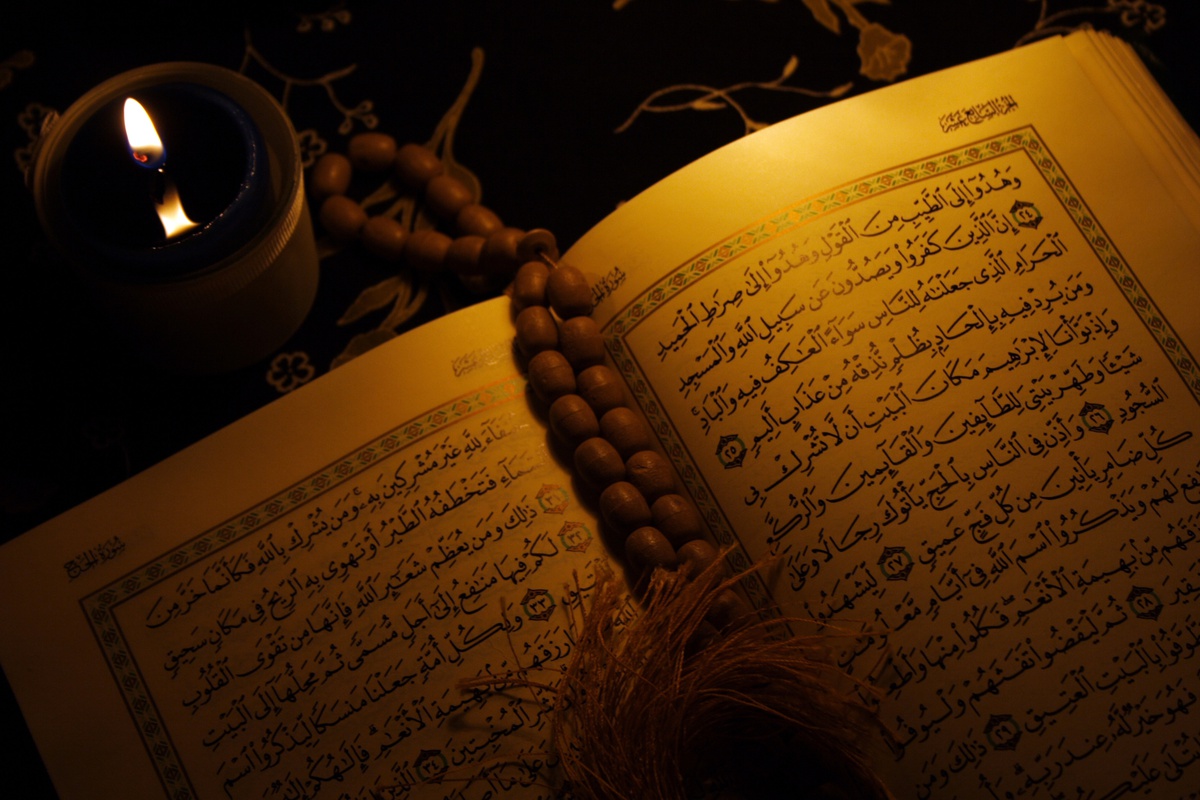 الجزء السابع عشر
وَهُدُوٓا۟ إِلَى ٱلطَّيِّبِ مِنَ ٱلْقَوْلِ وَهُدُوٓا۟ إِلَىٰ صِرَٰطِ ٱلْحَمِيدِ
٢٤ إِنَّ ٱلَّذِينَ كَفَرُوا۟ وَيَصُدُّونَ عَن سَبِيلِ ٱللَّهِ وَٱلْمَسْجِدِ
ٱلْحَرَامِ ٱلَّذِى جَعَلْنَٰهُ لِلنَّاسِ سَوَآءً ٱلْعَٰكِفُ فِيهِ وَٱلْبَادِ ۚ
وَمَن يُرِدْ فِيهِ بِإِلْحَادٍۭ بِظُلْمٍ نُّذِقْهُ مِنْ عَذَابٍ أَلِيمٍ ٢٥
وَإِذْ بَوَّأْنَا لِإِبْرَٰهِيمَ مَكَانَ ٱلْبَيْتِ أَن لَّا تُشْرِكْ بِى
شَيْـًٔا وَطَهِّرْ بَيْتِىَ لِلطَّآئِفِينَ وَٱلْقَآئِمِينَ وَٱلرُّكَّعِ
ٱلسُّجُودِ ٢٦ وَأَذِّن فِى ٱلنَّاسِ بِٱلْحَجِّ يَأْتُوكَ رِجَالًا وَعَلَىٰ
كُلِّ ضَامِرٍ يَأْتِينَ مِن كُلِّ فَجٍّ عَمِيقٍ ٢٧ لِّيَشْهَدُوا۟
لَهُمْ وَيَذْكُرُوا۟ ٱسْمَ ٱللَّهِ فِىٓ أَيَّامٍ
مِّنۢ بَهِيمَةِ ٱلْأَنْعَٰمِ ۖ فَكُلُوا۟ مِنْهَا
٢٨ ثُمَّ لْيَقْضُوا۟ تَفَثَهُمْ
بِٱلْبَيْتِ ٱلْعَتِيقِ ٢٩ ذَٰلِكَ وَمَن
خَيْرٌ لَّهُۥ عِندَ رَبِّهِۦ
سورة الحج
لِلَّهِ غَيْرَ مُشْرِكِينَ بِهِۦ ۚ وَمَن يُشْرِكْ بِٱللَّهِ فَكَأَنَّمَا خَرَّ مِنَ
ٱلسَّمَآءِ فَتَخْطَفُهُ ٱلطَّيْرُ أَوْ تَهْوِى بِهِ ٱلرِّيحُ فِى مَكَانٍ سَحِيقٍ
٣١ ذَٰلِكَ وَمَن يُعَظِّمْ شَعَٰٓئِرَ ٱللَّهِ فَإِنَّهَا مِن تَقْوَى ٱلْقُلُوبِ
٣٢ لَكُمْ فِيهَا مَنَٰفِعُ إِلَىٰٓ أَجَلٍ مُّسَمًّى ثُمَّ مَحِلُّهَآ إِلَى ٱلْبَيْتِ
٣٣ وَلِكُلِّ أُمَّةٍ جَعَلْنَا مَنسَكًا لِّيَذْكُرُوا۟ ٱسْمَ
رَزَقَهُم مِّنۢ بَهِيمَةِ ٱلْأَنْعَٰمِ ۗ فَإِلَٰهُكُمْ إِلَٰهٌ
ٱلْمُخْبِتِينَ ٣٤ ٱلَّذِينَ